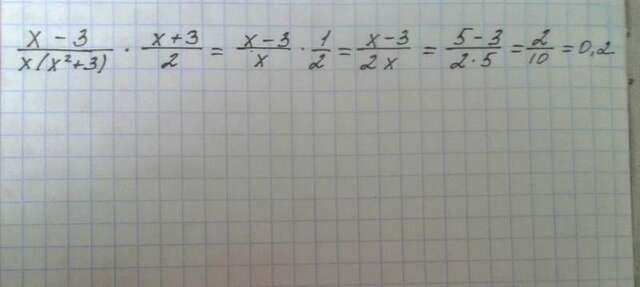 x - 3 / x(x²+3) · x+3 / 2 = x-3 / x · 1 / 2 = x-3 / 2x = 5-3 / 2·5 = 2 / 10 = 0,2